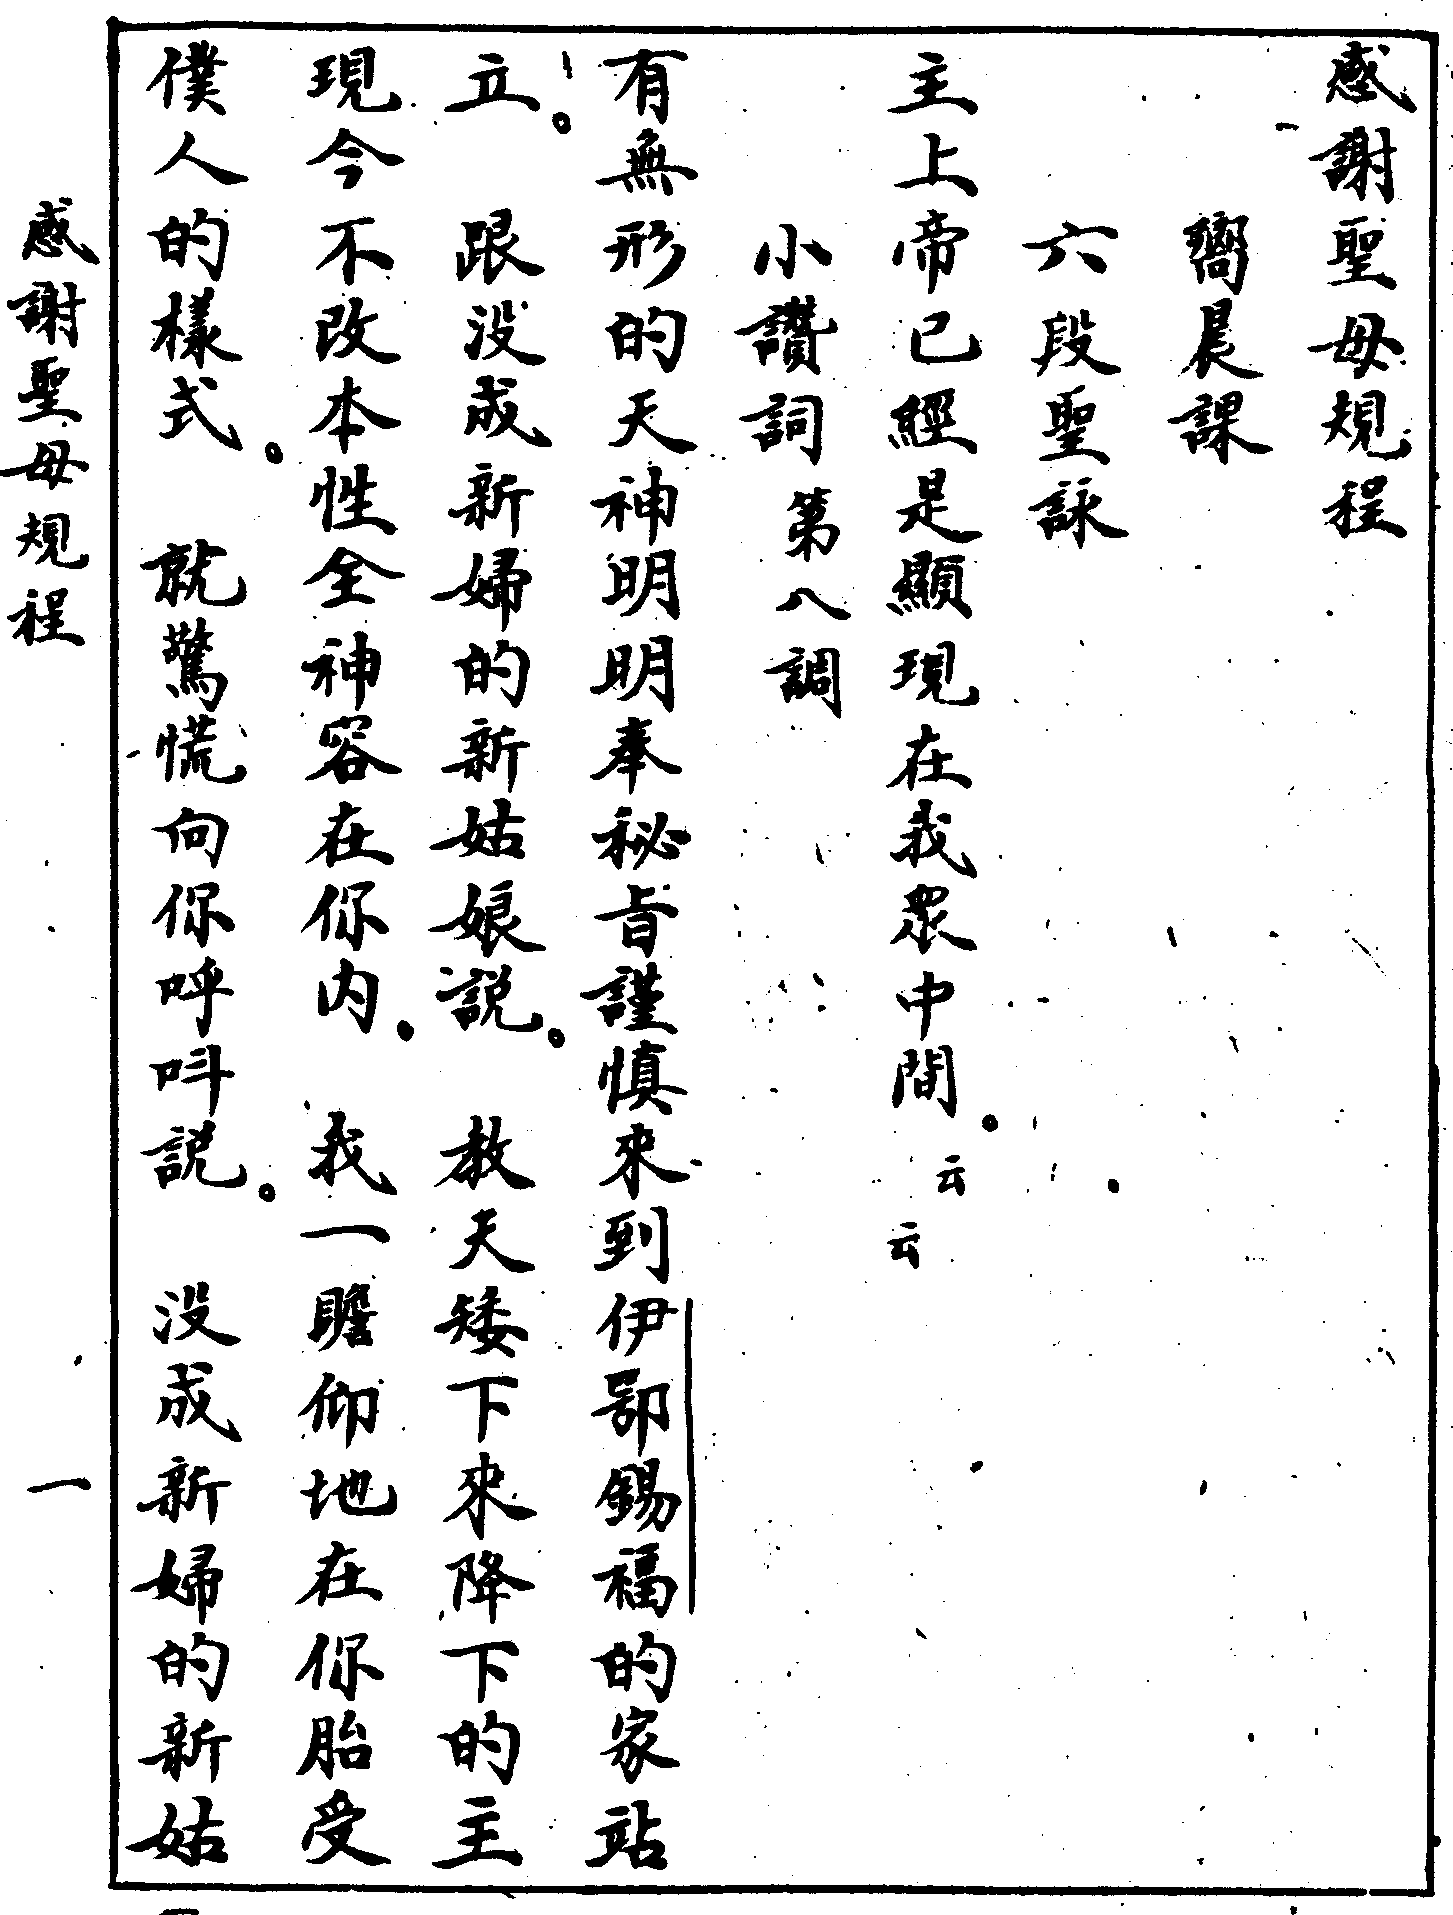 感謝聖母規程
嚮晨課
六段聖詠
主上帝已經是顯現在我眾中間。云云
小讚詞 第八調
有無形的天神明明奉秘旨謹慎來到伊鄂錫福的家站
立。 跟没成新婦的新姑娘説。 教天矮下來降下的主
現今不改本性全神容在你内。 我一瞻仰地在你胎受
僕人的樣式。 就驚慌向你呼呌説。 没成新婦的新姑
感謝聖母規程 一